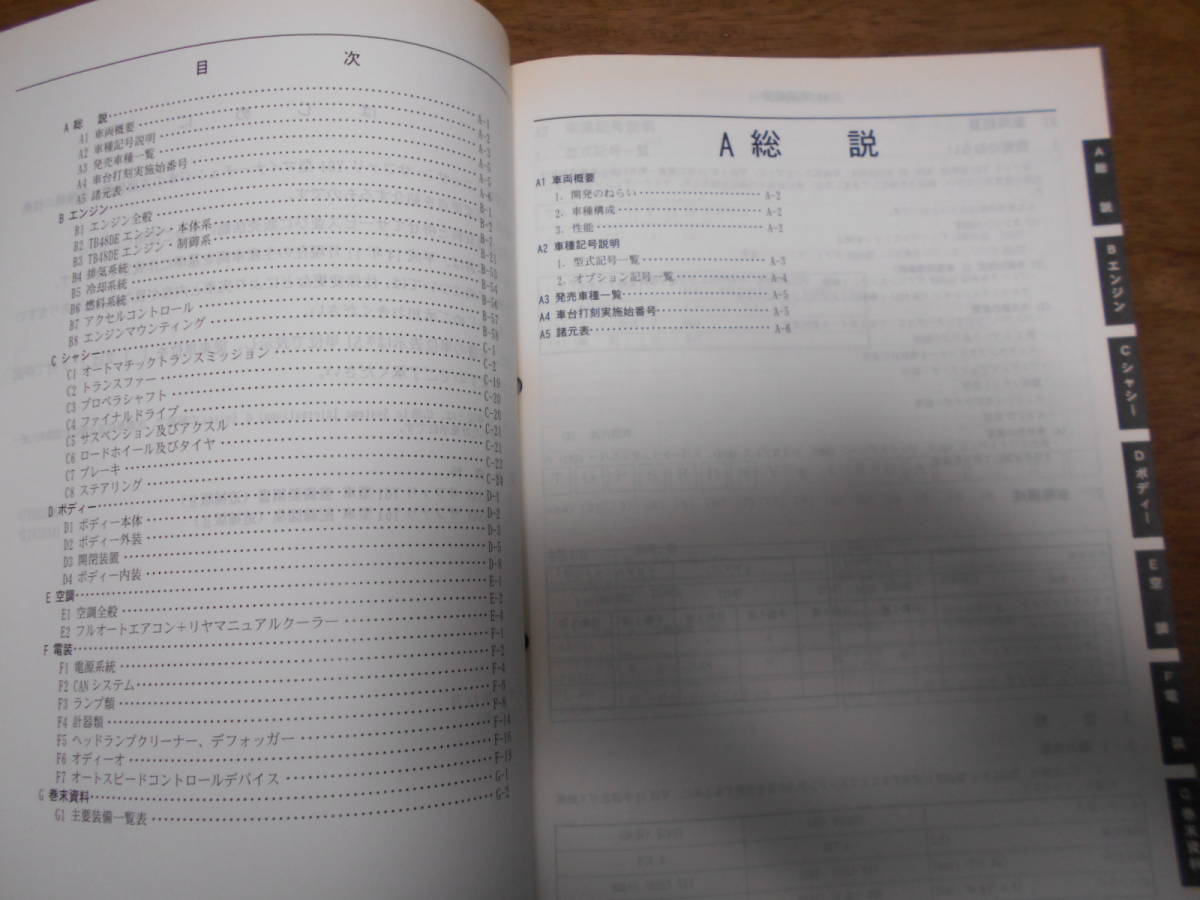 目次
A 総 説 A-1
A1 車両概要 A-2
A2 車種記号説明 A-3
A3 発売車種一覧 A-5
A4 車台打刻実施始番号 A-5
A5 諸元表 A-6
B エンジン B-1
B1 エンジン全般 B-2
B2 TB48DEエンジン・本体系 B-7
B3 TB48DEエンジン・制御系 B-21
B4 排気系統 B-53
B5 冷却系統 B-54
B6 燃料系統 B-56
B7 アクセルコントロール B-57
B8 エンジンマウンティング B-58
C シャシー C-1
C1 オートマチックトランスミッション C-2
C2 トランスファー C-19
C3 プロペラシャフト C-20
C4 ファイナルドライブ C-20
C5 サスペンション及びアクスル C-21
C6 ロードホイール及びタイヤ C-21
C7 ブレーキ C-22
C8 ステアリング C-24
D ボディー D-1
D1 ボディー本体 D-2
D2 ボディー外装 D-3
D3 開閉装置 D-5
D4 ボディー内装 D-8
E 空調 E-1
E1 空調全般 E-2
E2 フルオートエアコン+リヤマニュアルクーラー E-4
F 電装 F-1
F1 電源系統 F-2
F2 CANシステム F-4
F3 ランプ類 F-6
F4 計器類 F-8
F5 ヘッドランプクリーナー、デフォッガー F-14
F6 オーディオ F-16
F7 オートスピードコントロールデバイス F-19
G 巻末資料 G-1
G1 主要装備一覧表 G-2
A 総 説
A1 車両概要
1. 開発のねらい A-2
2. 車種構成 A-2
3. 性能 A-2
A2 車種記号説明
1. 型式記号一覧 A-3
2. オプション記号一覧 A-4
A3 発売車種一覧 A-5
A4 車台打刻実施始番号 A-5
A5 諸元表 A-6
A 総 説
B エンジン
C シャシー
D ボディー
E 空 調
F 電 装
G 巻末資料